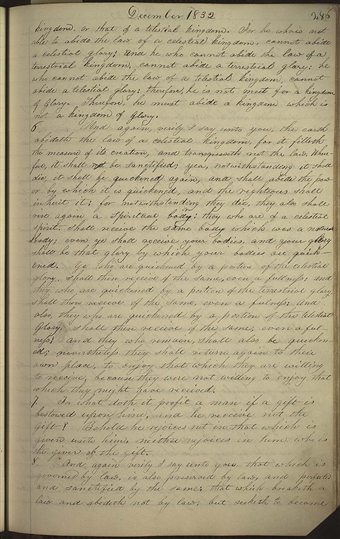 December 1832
kingdom, or that of a telestial kingdom. For he who is not
able to abide the law of a celestial kingdom, cannot abide
a celestial glory; and he who cannot abide the law of a
terestrial kingdom, cannot abide a terestrial glory; he
who cannot abide the law of a telestial kingdom, cannot
abide a telestial glory; therefore, he is not meet for a kingdom
of Glory. Therefore, he must abide a kingdom which is
not a kingdom of glory.
6 And again, verily I say unto you, the earth
abideth the law of a celestial kingdom, for it filleth
the measure of its creation, and transgresseth not the law. Where-
fore, it shall be sanctified; yea, notwithstanding it shall
die, it shall be quickened again, and shall abide the pow-
er by which it is quickened, and the righteous shall
inherit it; for notwithstanding they die, they also shall
rise again a spiritual body: they who are of a celestial
spirit shall receive the same body which was a natural
body; even ye shall receive your bodies, and your glory
shall be that glory by which your bodies are quick-
ened. Ye who are quickened by a portion of the celestial
glory, shall then receive of the same, even a fulness; and
they who are quickened by a portion of the terestrial glory
shall then receive of the same even a fulness: And
also they who are quickened by a portion of the telestial
Glory, shall then receive of the same, even a ful-
ness: and they who remain, shall also be quicken-
ed; nevertheless, they shall return again to their
own place, to enjoy that which they are willing
to receive, because they were not willing to enjoy that
which they might have received.
7 For what doth it profit a man if a gift is
bestowed upon him, and he receive not the
gift? Behold he rejoices not in that which is
given unto him, neither rejoices in him who is
the giver of the gift.
8 And again verily I say unto you, that which is
governed by law, is also preserved by law, and perfected
and sanctified by the same: that which breaketh a
law and abideth not by law, but seeketh to become